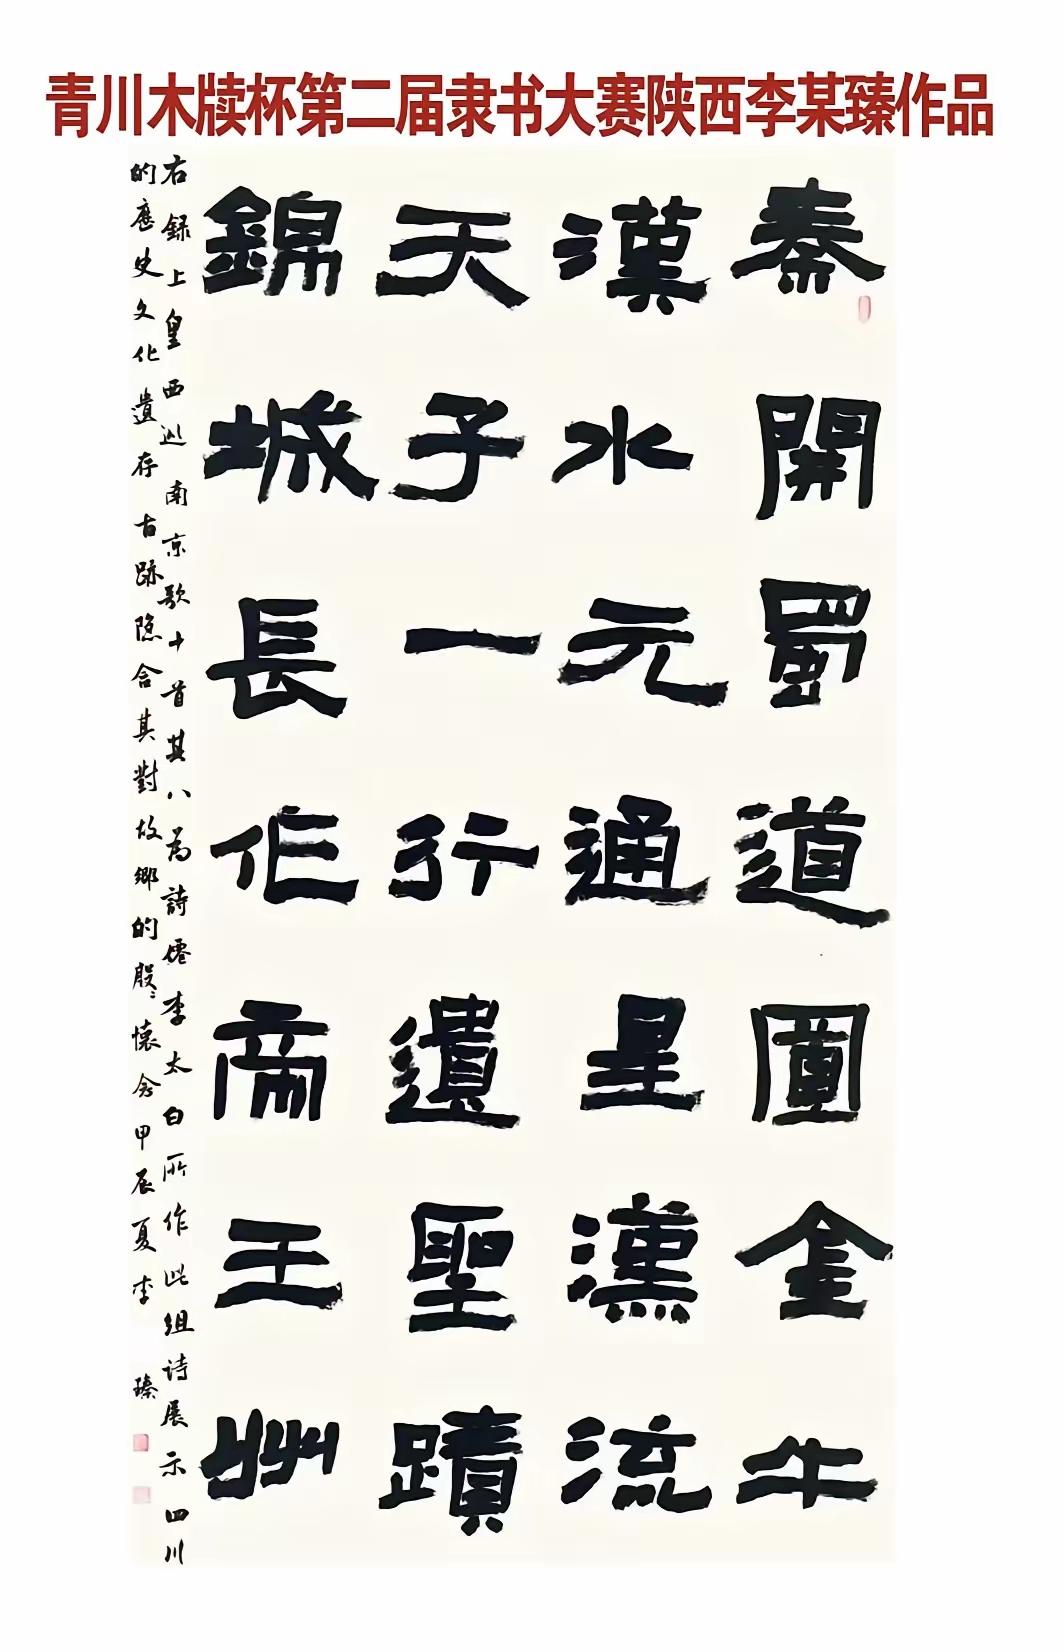 青川木牍杯第二届隶书大赛陕西李某臻作品
秦開蜀道置金牛
漢水元通星漢流
天子一行遺聖蹟
錦城長作帝王州
右録上皇西巡南京歌十首其八為詩僊李太白所作此组诗展示四川
的歷史文化遺存古跡隐含其對故鄉的殷殷懷念甲辰夏李臻